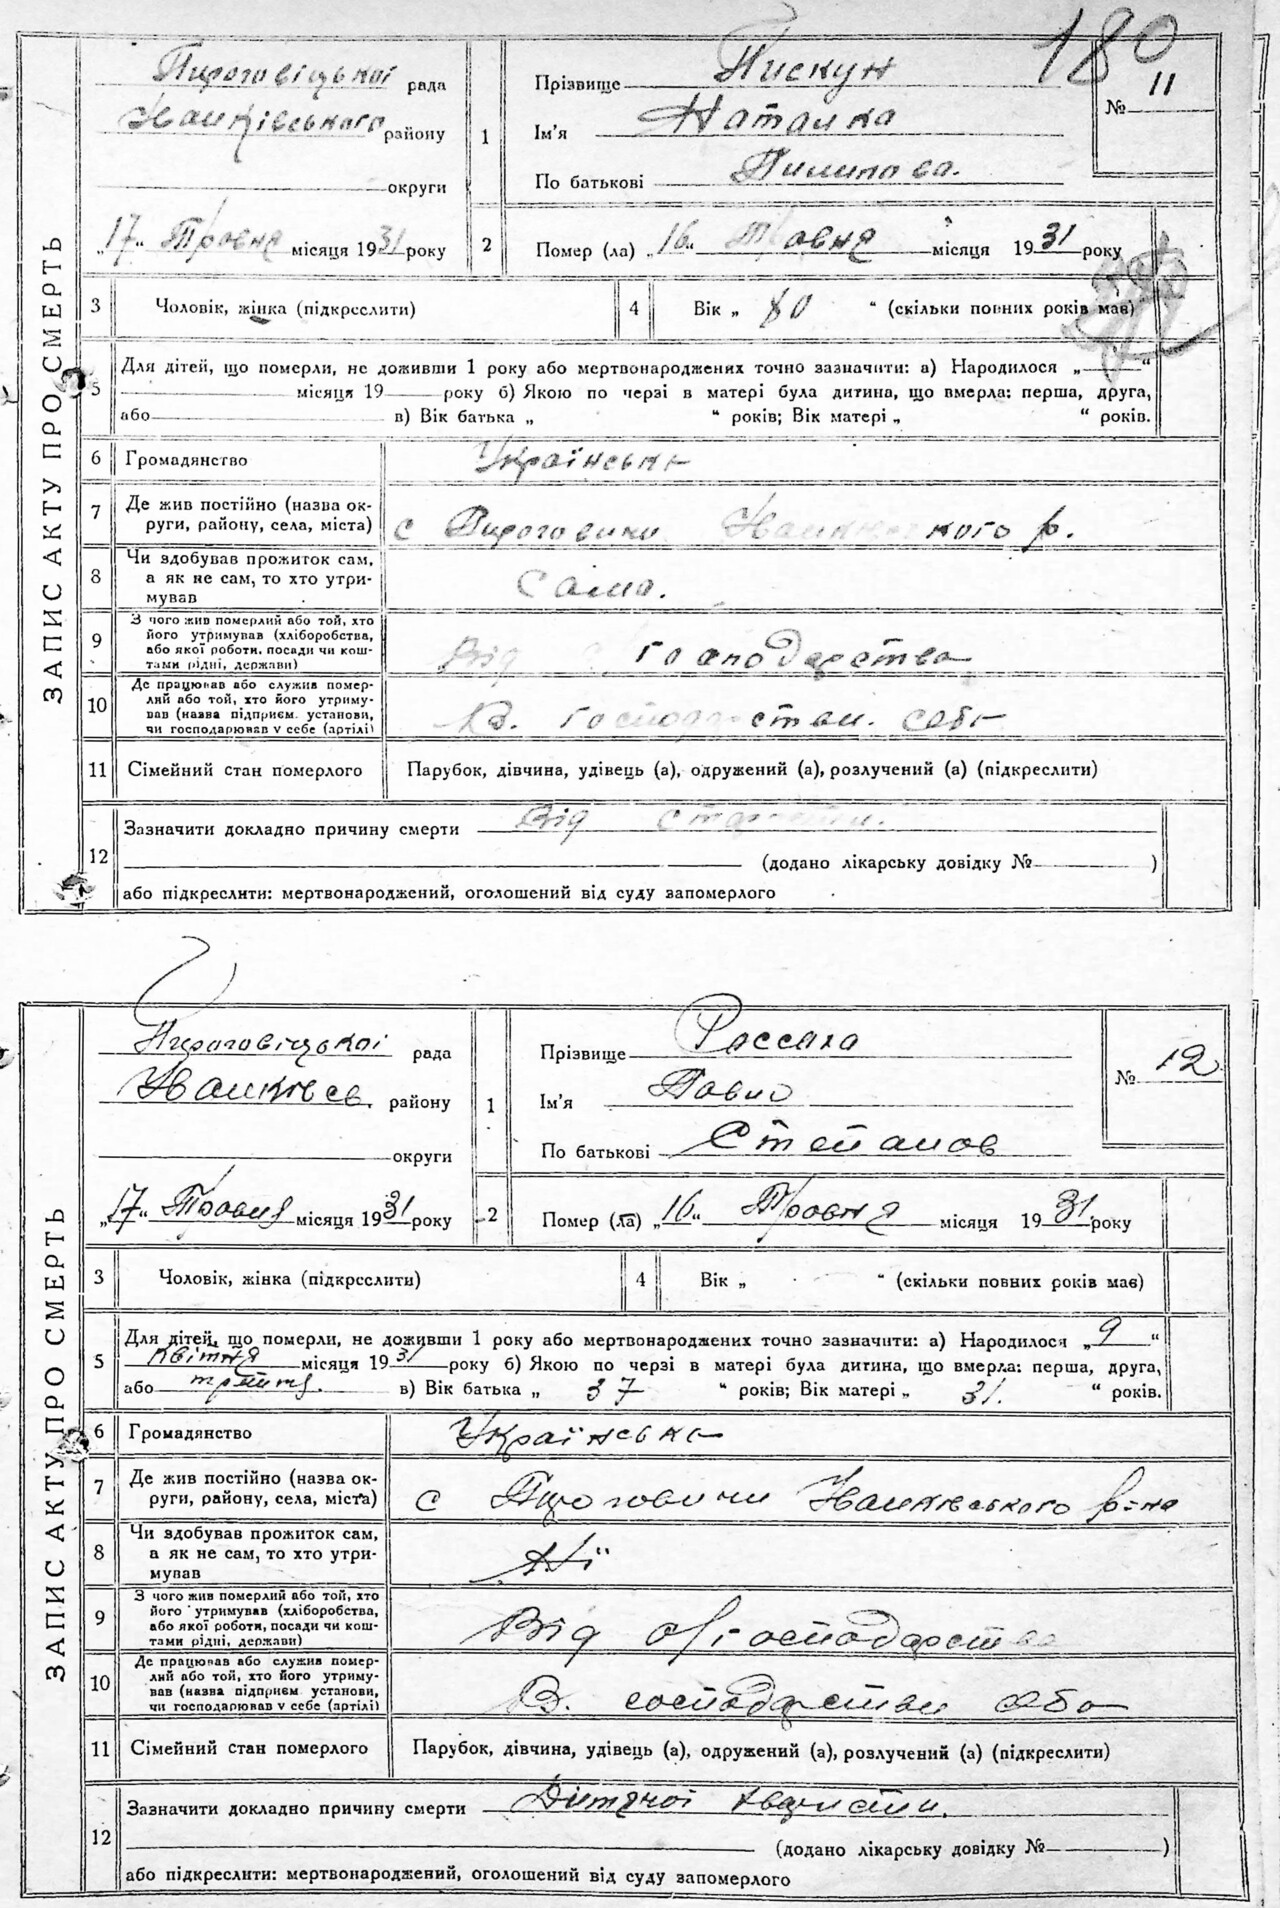 180
ЗАПИС АКТУ ПРО СМЕРТЬ
Пироговіцької рада
Іванківського району
округи
„17“ Травня місяця 1931 року
1
Прізвище Пискун
Ім'я Наталка
По батькові Пилипова.
№ 11
2
Помер (ла) „16“ Травня місяця 1931 року
3 Чоловік, жінка (підкреслити)
4 Вік „ 80 “ (скільки повних років мав)
5 Для дітей, що померли, не доживши 1 року або мертвонароджених точно зазначити: а) Народилося „ “
місяця 19 року б) Якою по черзі в матері була дитина, що вмерла: перша, друга,
або в) Вік батька „ “ років; Вік матері „ “ років.
6 Громадянство Українська
7 Де жив постійно (назва ок-
руги, району, села, міста) с Пироговичи р.
8 Чи здобував прожиток сам,
а як не сам, то хто утри-
мував Сама.
9 З чого жив померлий або той, хто
його утримував (хліборобства,
або якої роботи, посади чи кош-
тами рідні, держави) Від господарства
10 Де працював або служив помер-
лий або той, хто його утриму-
вав (назва підприєм. установи,
чи господарював у себе (артілі) В. господарстви.
11 Сімейний стан померлого Парубок, дівчина, удівець (а), одружений (а), розлучений (а) (підкреслити)
12 Зазначити докладно причину смерти Від старости.
(додано лікарську довідку № )
або підкреслити: мертвонароджений, оголошений від суду запомерлого
ЗАПИС АКТУ ПРО СМЕРТЬ
Пироговіцької рада
Іванківсв. району
округи
„17“ Травня місяця 1931 року
1
Прізвище Россаха
Ім'я Павло
По батькові Степанов
№ 12
2
Помер (ла) „16“ Травня місяця 1931. року
3 Чоловік, жінка (підкреслити)
4 Вік „ “ (скільки повних років мав)
5 Для дітей, що померли, не доживши 1 року або мертвонароджених точно зазначити: а) Народилося „9“
квітня місяця 1931 року б) Якою по черзі в матері була дитина, що вмерла: перша, друга,
або третя. в) Вік батька „ 37 “ років; Вік матері „ 31. “ років.
6 Громадянство Українська
7 Де жив постійно (назва ок-
руги, району, села, міста) с Пироговичи Іванківського р-на
8 Чи здобував прожиток сам,
а як не сам, то хто утри-
мував Ні
9 З чого жив померлий або той, хто
його утримував (хліборобства,
або якої роботи, посади чи кош-
тами рідні, держави) Від с/господарства
10 Де працював або служив помер-
лий або той, хто його утриму-
вав (назва підприєм. установи,
чи господарював у себе (артілі) В. господарстви себе
11 Сімейний стан померлого Парубок, дівчина, удівець (а), одружений (а), розлучений (а) (підкреслити)
12 Зазначити докладно причину смерти Дитячої хварости.
(додано лікарську довідку № )
або підкреслити: мертвонароджений, оголошений від суду запомерлого